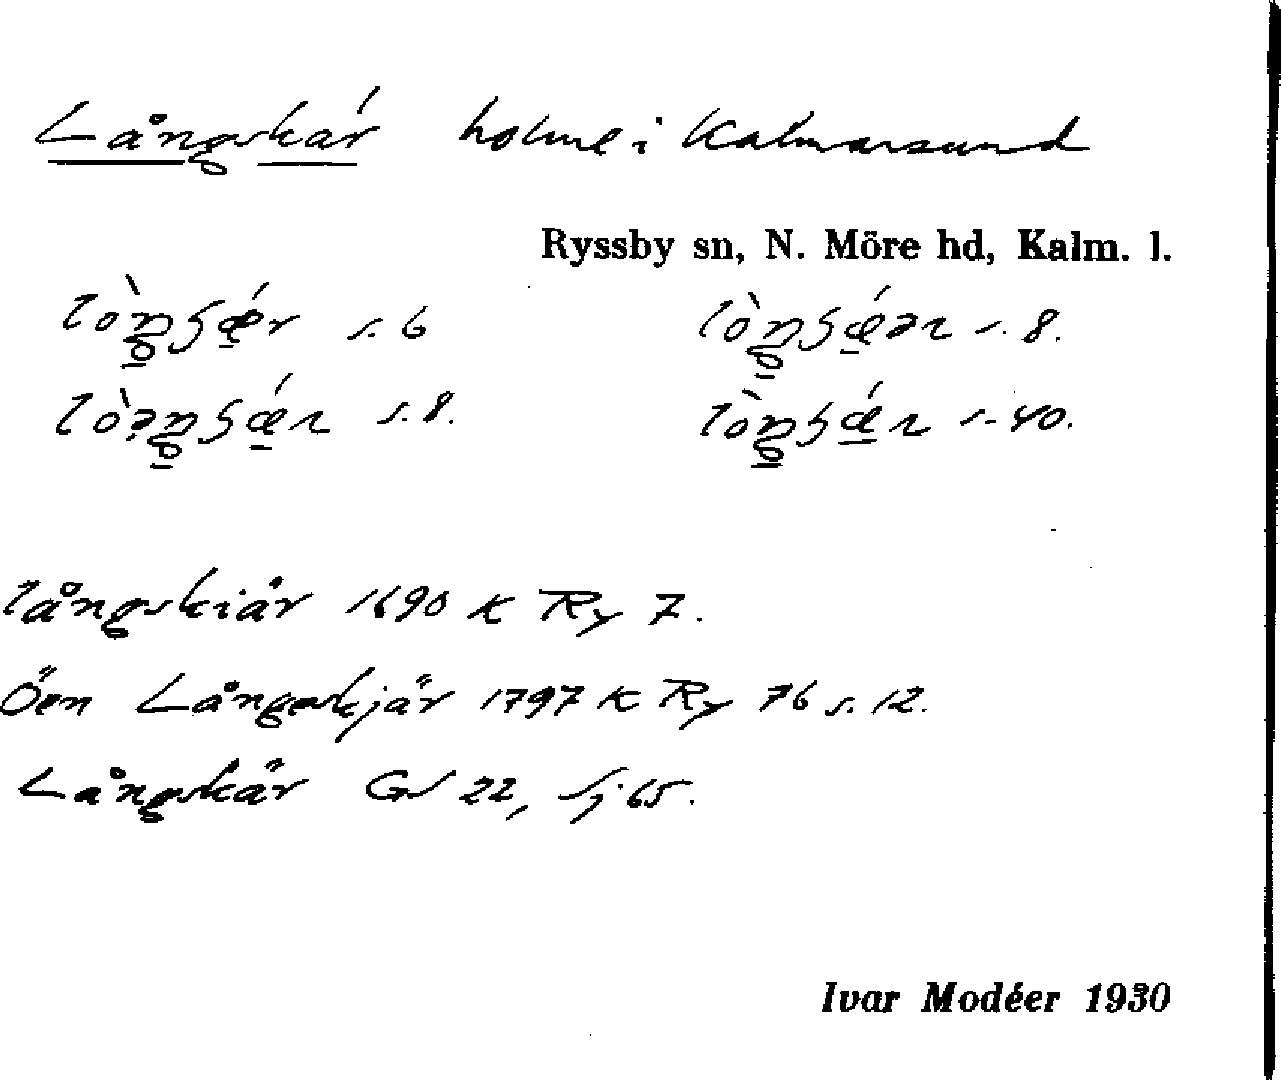 Långskär holme i Kalmarsund
Ryssby sn, N. Möre hd, Kalm. l.
s. 6 s. 8.
s. 8. s. 40.
Långskiär 1690 K Ry 7.
Öen Långeskjär 1797 K Ry 76 s. 12.
Långskär GS 22, Sj 65.
Ivar Modéer 1930